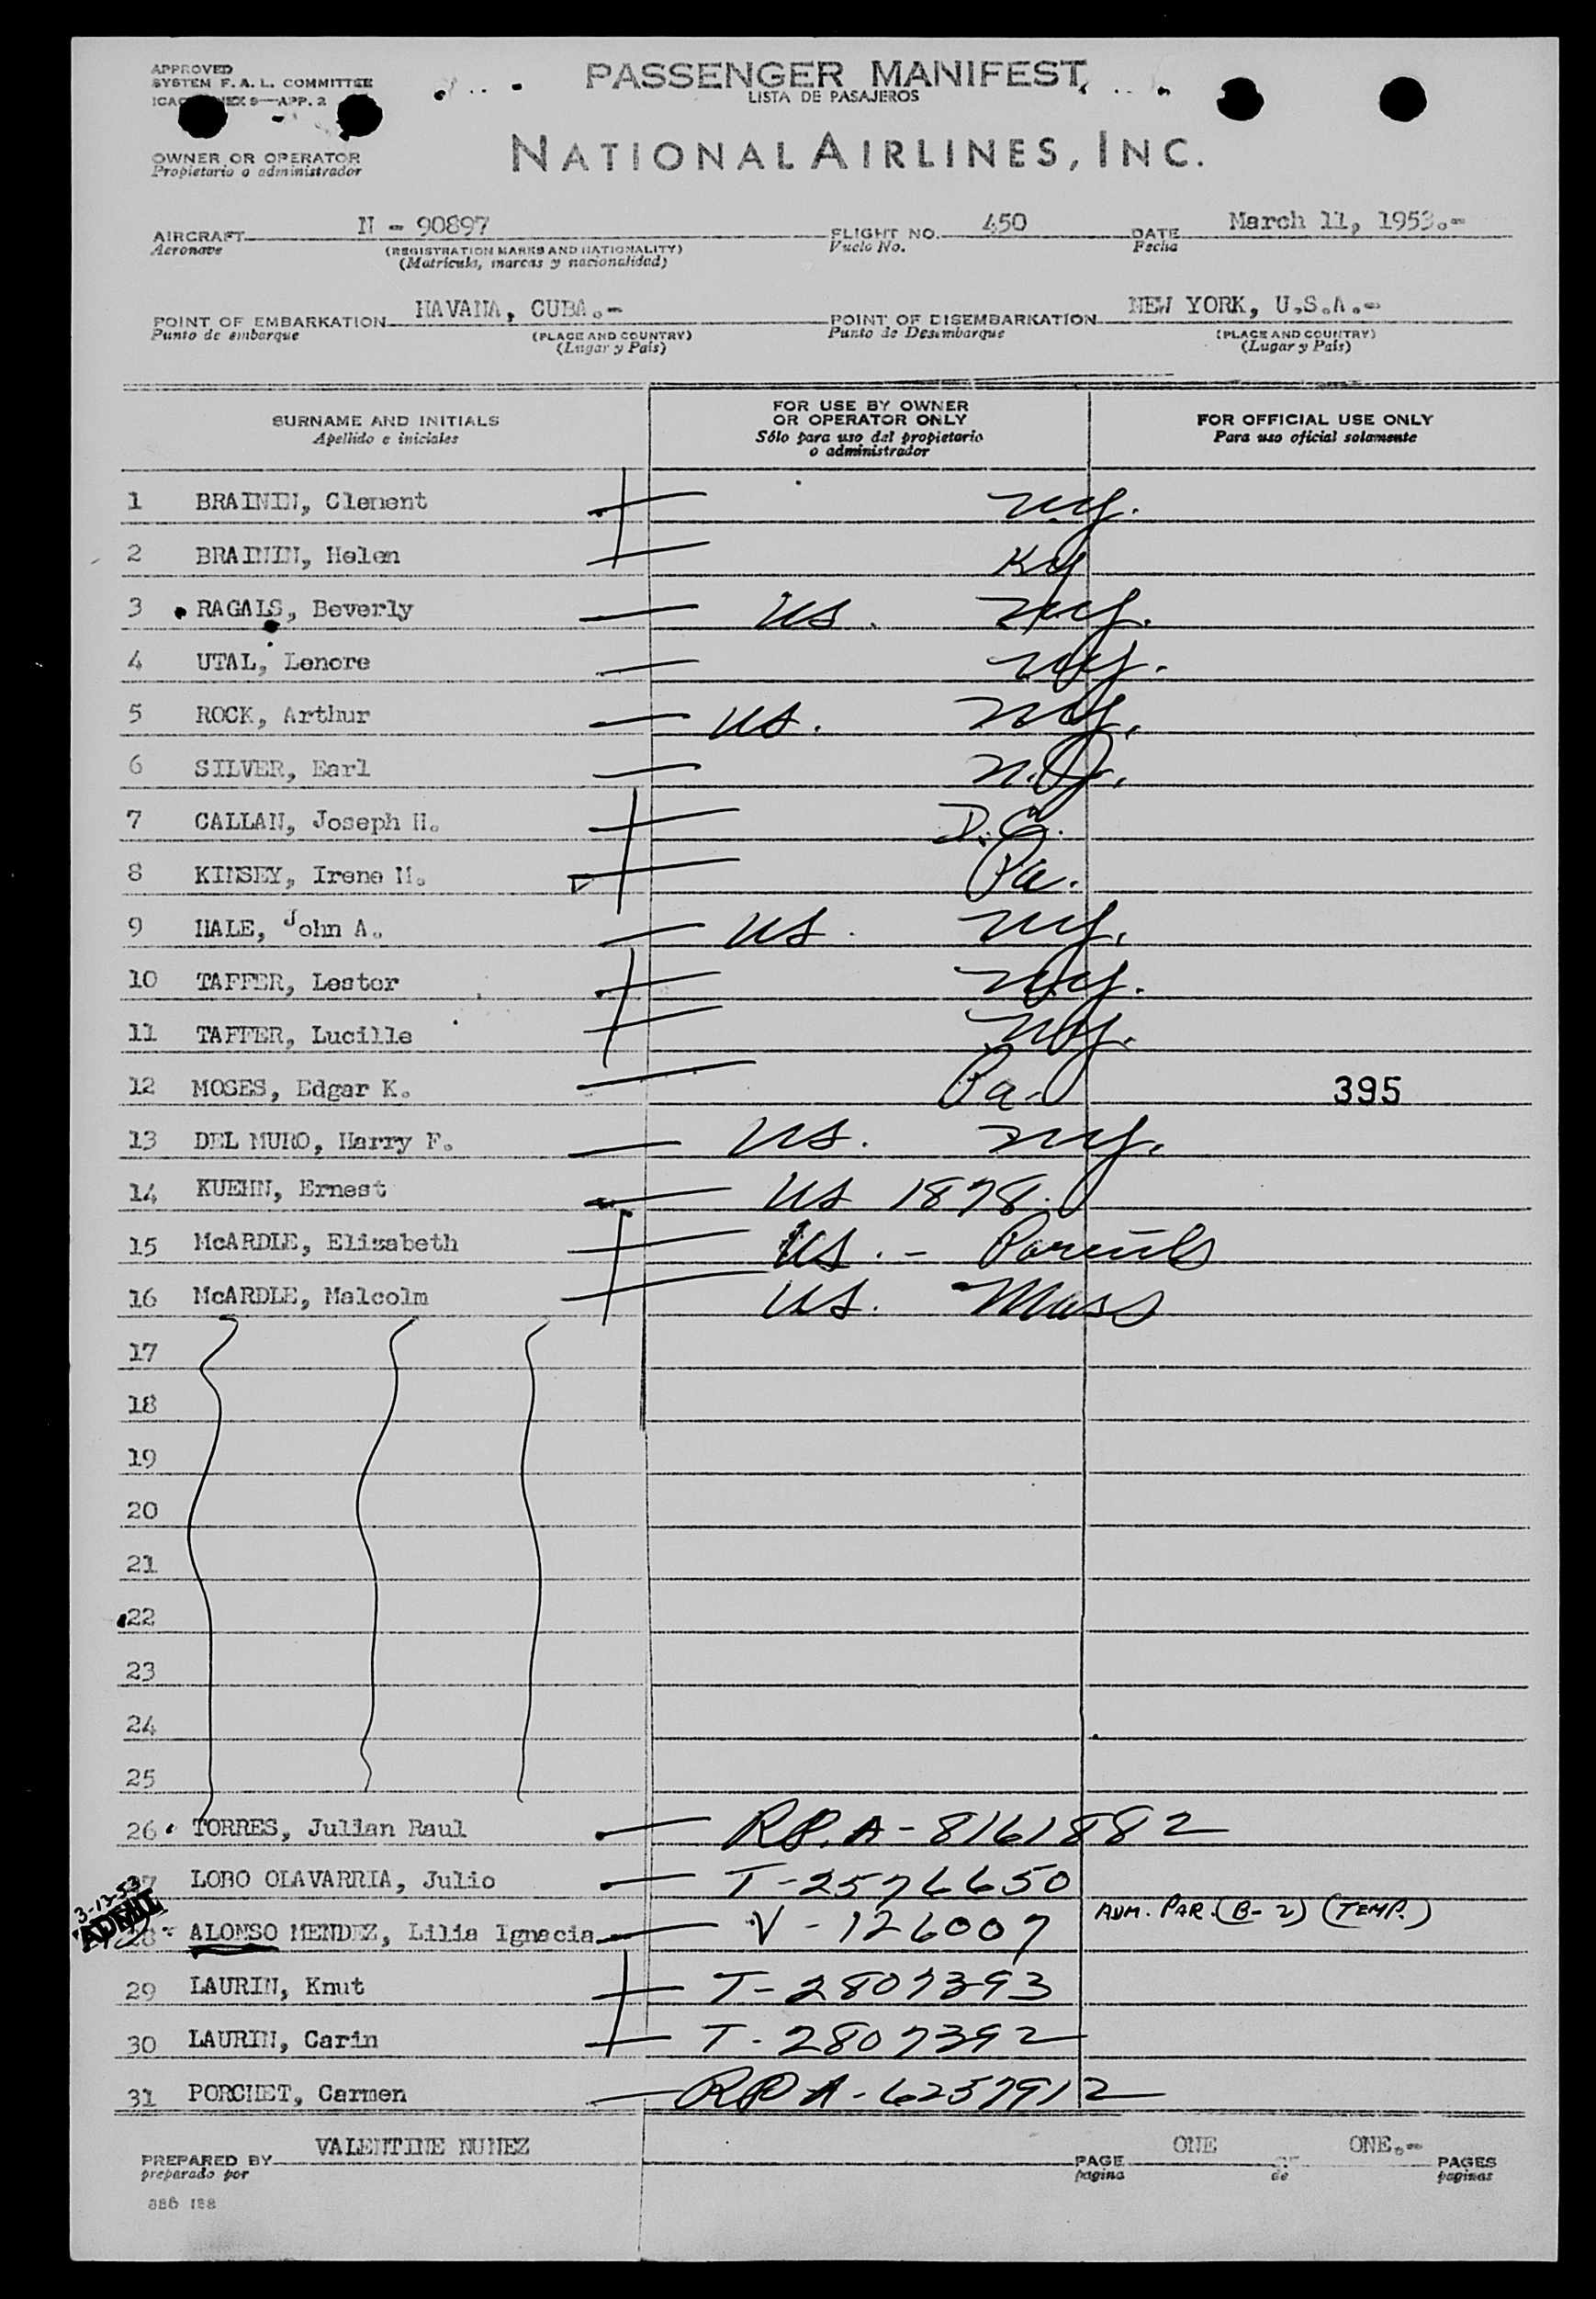 APPROVED
SYSTEM F. A. L. COMMITTEE
9—APP. 2
PASSENGER MANIFEST
LISTA DE PASAJEROS
OWNER OR OPERATOR
Propietario o administrador
NATIONAL AIRLINES, INC.
AIRCRAFT N - 90897 FLIGHT NO. 450 DATE March 11, 1953.-
Aeronave (REGISTRATION MARKS AND NATIONALITY) Vuelo No. Fecha
(Matricula, marcas y nacionalidad)
POINT OF EMBARKATION HAVANA, CUBA.- POINT OF DISEMBARKATION NEW YORK, U.S.A.-
Punto de embarque (PLACE AND COUNTRY) Punto de Desembarque (PLACE AND COUNTRY)
(Lugar y Pais) (Lugar y Pais)
SURNAME AND INITIALS FOR USE BY OWNER OR OPERATOR ONLY FOR OFFICIAL USE ONLY
Apellido e iniciales Sólo para uso del propietario o administrador Para uso oficial solamente
1 BRAININ, Clement NY.
2 BRAININ, Helen Ky
3 RAGALS, Beverly US. NY.
4 UTAL, Lenore NY.
5 ROCK, Arthur US. NY.
6 SILVER, Earl N.J.
7 CALLAN, Joseph H. D.C.
8 KINSEY, Irene M. Pa.
9 HALE, John A. US. NY.
10 TAFFER, Lester NY.
11 TAFFER, Lucille NY.
12 MOSES, Edgar K. Pa. 395
13 DEL MURO, Harry F. US. NY.
14 KUEHN, Ernest US 1878.
15 McARDLE, Elizabeth US. - Parents
16 McARDLE, Malcolm US. Mass
17
18
19
20
21
22
23
24
25
26 TORRES, Julian Raul RP. A-8161882
27 LOBO OLAVARRIA, Julio T-2576650
3-12-53
ADMIT
28 ALONSO MENDEZ, Lilia Ignacia V-126007 ADM. PAR. (B-2) (TEMP.)
29 LAURIN, Knut T-2807393
30 LAURIN, Carin T-2807392
31 PORCHET, Carmen RP A-6257912
PREPARED BY VALENTINE NUNEZ PAGE ONE OF ONE.- PAGES
preparado por pagina de paginas